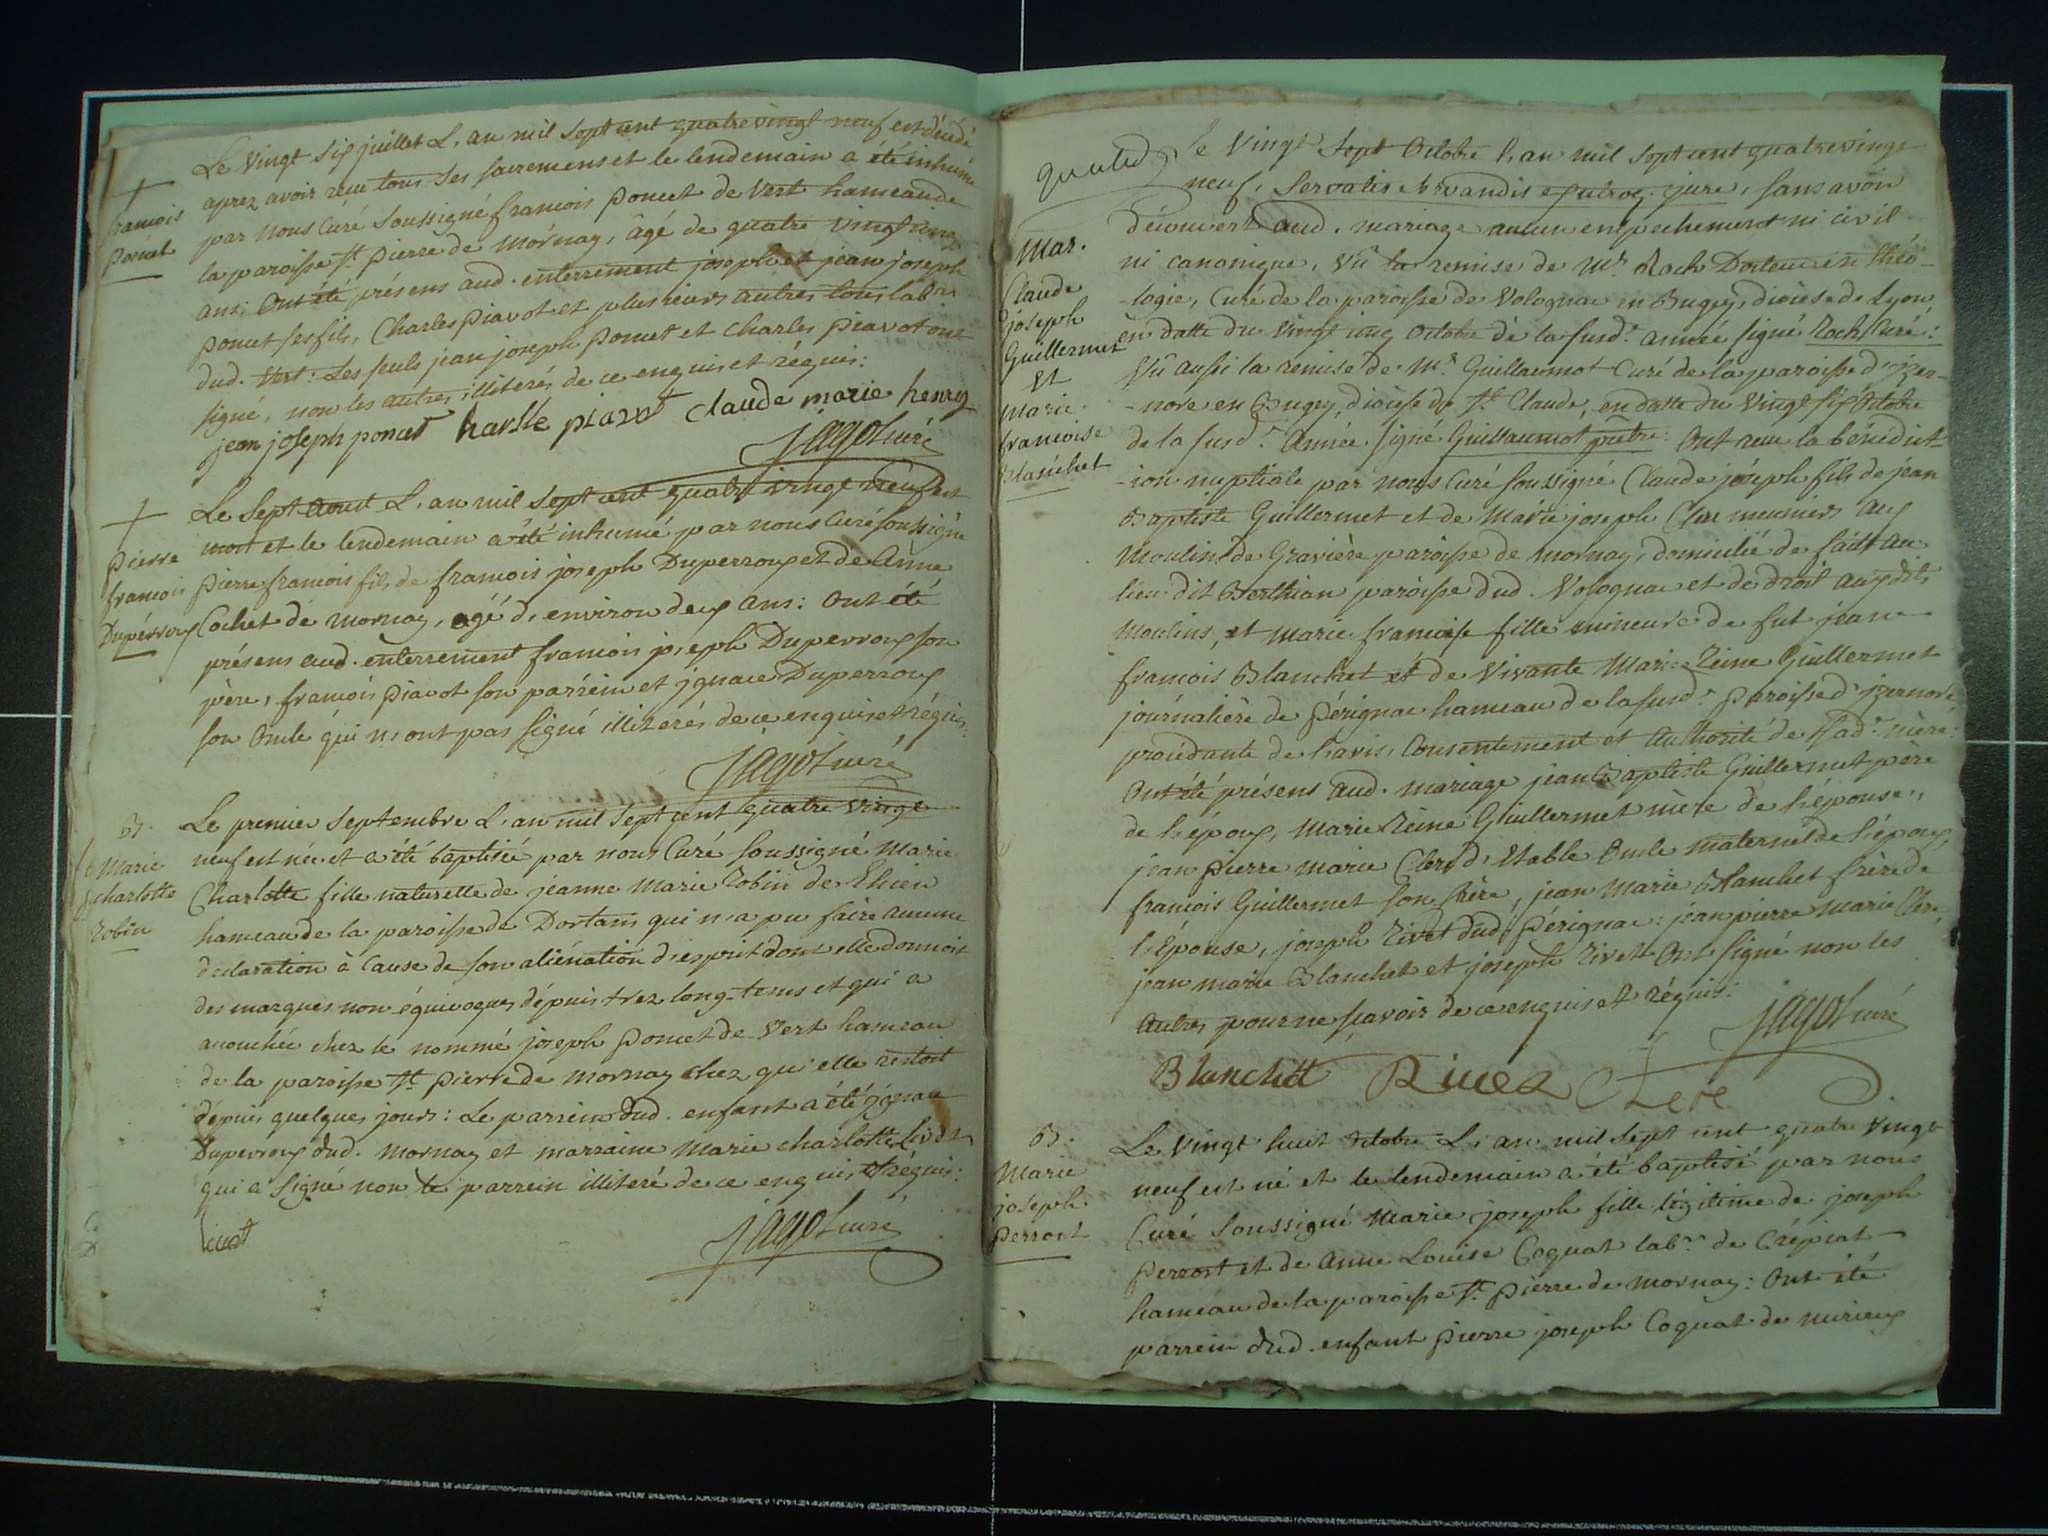 Le vingt six juillet L'an mil sept cent quatre vingt neuf est décédé
aprez avoir reçu tous ses sacremens et le lendemain a été inhumé
par nous Curé soussigné francois poncet de Vert hameau de
la paroisse st. pierre de mornay, âgé de quatre vingt cinq
ans: Ont été présens aud. enterrement joseph et jean joseph
poncet ses fils, Charles piavot et plusieurs autres tous labrs
dud. Vert: Les seuls jean joseph poncet et Charles piavot ont
signé, non les autres illiterés de ce enquis et réquis:
jean joseph poncet harlle piavot Claude marie henry
jagot curé
+
francois
poncet
Le sept aout L'an mil sept cent quatre vingt neuf est
mort et le lendemain a été inhumé par nous Curé soussigné
pierre francois fils de francois joseph Duperroux et de Anne
Cochet de mornay, agé d'environ deux ans: Ont été
présens aud. enterrement francois joseph Duperroux son
père, francois piavot son parrein et jgnace Duperroux
son Oncle qui n'ont pas signé illiterés de ce enquis et réquis:
jagot curé
+
pierre
francois
Dupérroux
Le premier septembre L'an mil sept cent quatre vingt
neuf est née et a été baptisée par nous Curé soussigné Marie
Charlotte fille naturelle de jeanne Marie Robin de
hameau de la paroisse de Dortan qui n'a pu faire aucune
déclaration à cause de son aliénation d'esprit dont elle donnoit
des marques non équivoques dépuis trez long-tems et qui a
accouchée chez le nommé joseph poncet de Vert hameau
de la paroisse st. pierre de mornay chez qui elle restoit
dépuis quelques jours: Le parrein dud. enfant a été jgnace
Duperroux dud. Mornay et marraine Marie charlotte Livet
qui a signé non le parrein illiteré de ce enquis et réquis:
Livet
jagot curé
B.
Marie
charlotte
Robin
le Vingt Sept Octobre L'an mil sept cent quatre vingt
neuf, servatis servandis jure, sans avoir
découvert aud. mariage aucun empechement ni civil
ni canonique, Vû la remise de Mr. Roch Docteur en théo-
-logie, Curé de la paroisse de Volognac en Bugey, diocèse de Lyon
en datte du Vingt cinq Octobre de la susd.e année signé Roch Curé:
Vû aussi la remise de Mr. Guillaumot Curé de la paroisse d'jzer-
-nore en Bugey, diocèse de St. Claude, en datte du Vingt six Octobre
de la susd.e Année. signé Guillaumot prêtre: Ont reçu la bénédict-
-ion nuptiale par nous Curé soussigné Claude joseph fils de jean
Baptiste Guillermet et de Marie joseph Clerc meuniers aux
moulins de Gravière paroisse de mornay, domicilié de fait au
lieu dit Berthian paroisse dud. Volognac et de droit auxdits
moulins, et Marie francoise fille mineure de fut jean
francois Blanchet et de Vivante Marie Reine Guillermet
journalière de pérignac hameau de la susd.e paroisse d'jzernore
procédante de l'avis, consentement et Authorité de sad.e mère:
Ont été présens aud. mariage jean Baptiste Guillermet père
de l'époux, Marie Reine Guillermet mère de l'épouse,
jean pierre marie Clerc d'Etable Oncle maternel de l'époux,
francois Guillermet son frère, jean Marie Blanchet frère de
l'Épouse, joseph Rivet dud. pérignac: jean pierre Marie Clerc,
jean marie Blanchet et joseph Rivet Ont signé non les
autres pour ne sçavoir de ce enquis et réquis:
jagot curé
Blanchet Rivet Clerc
Mar.
Claude
joseph
Guillermet
Et
Marie
francoise
Blanchet
Le vingt huit Octobre L'an mil sept cent quatre vingt
neuf est né et le lendemain a été baptisé par nous
Curé soussigné Marie joseph fille légitime de joseph
perrost et de Anne Louise Coquat labr. de Crépiat
hameau de la paroisse st. pierre de mornay: Ont été
parrein dud. enfant pierre joseph Coquat de nurieux
B.
Marie
joseph
perrost